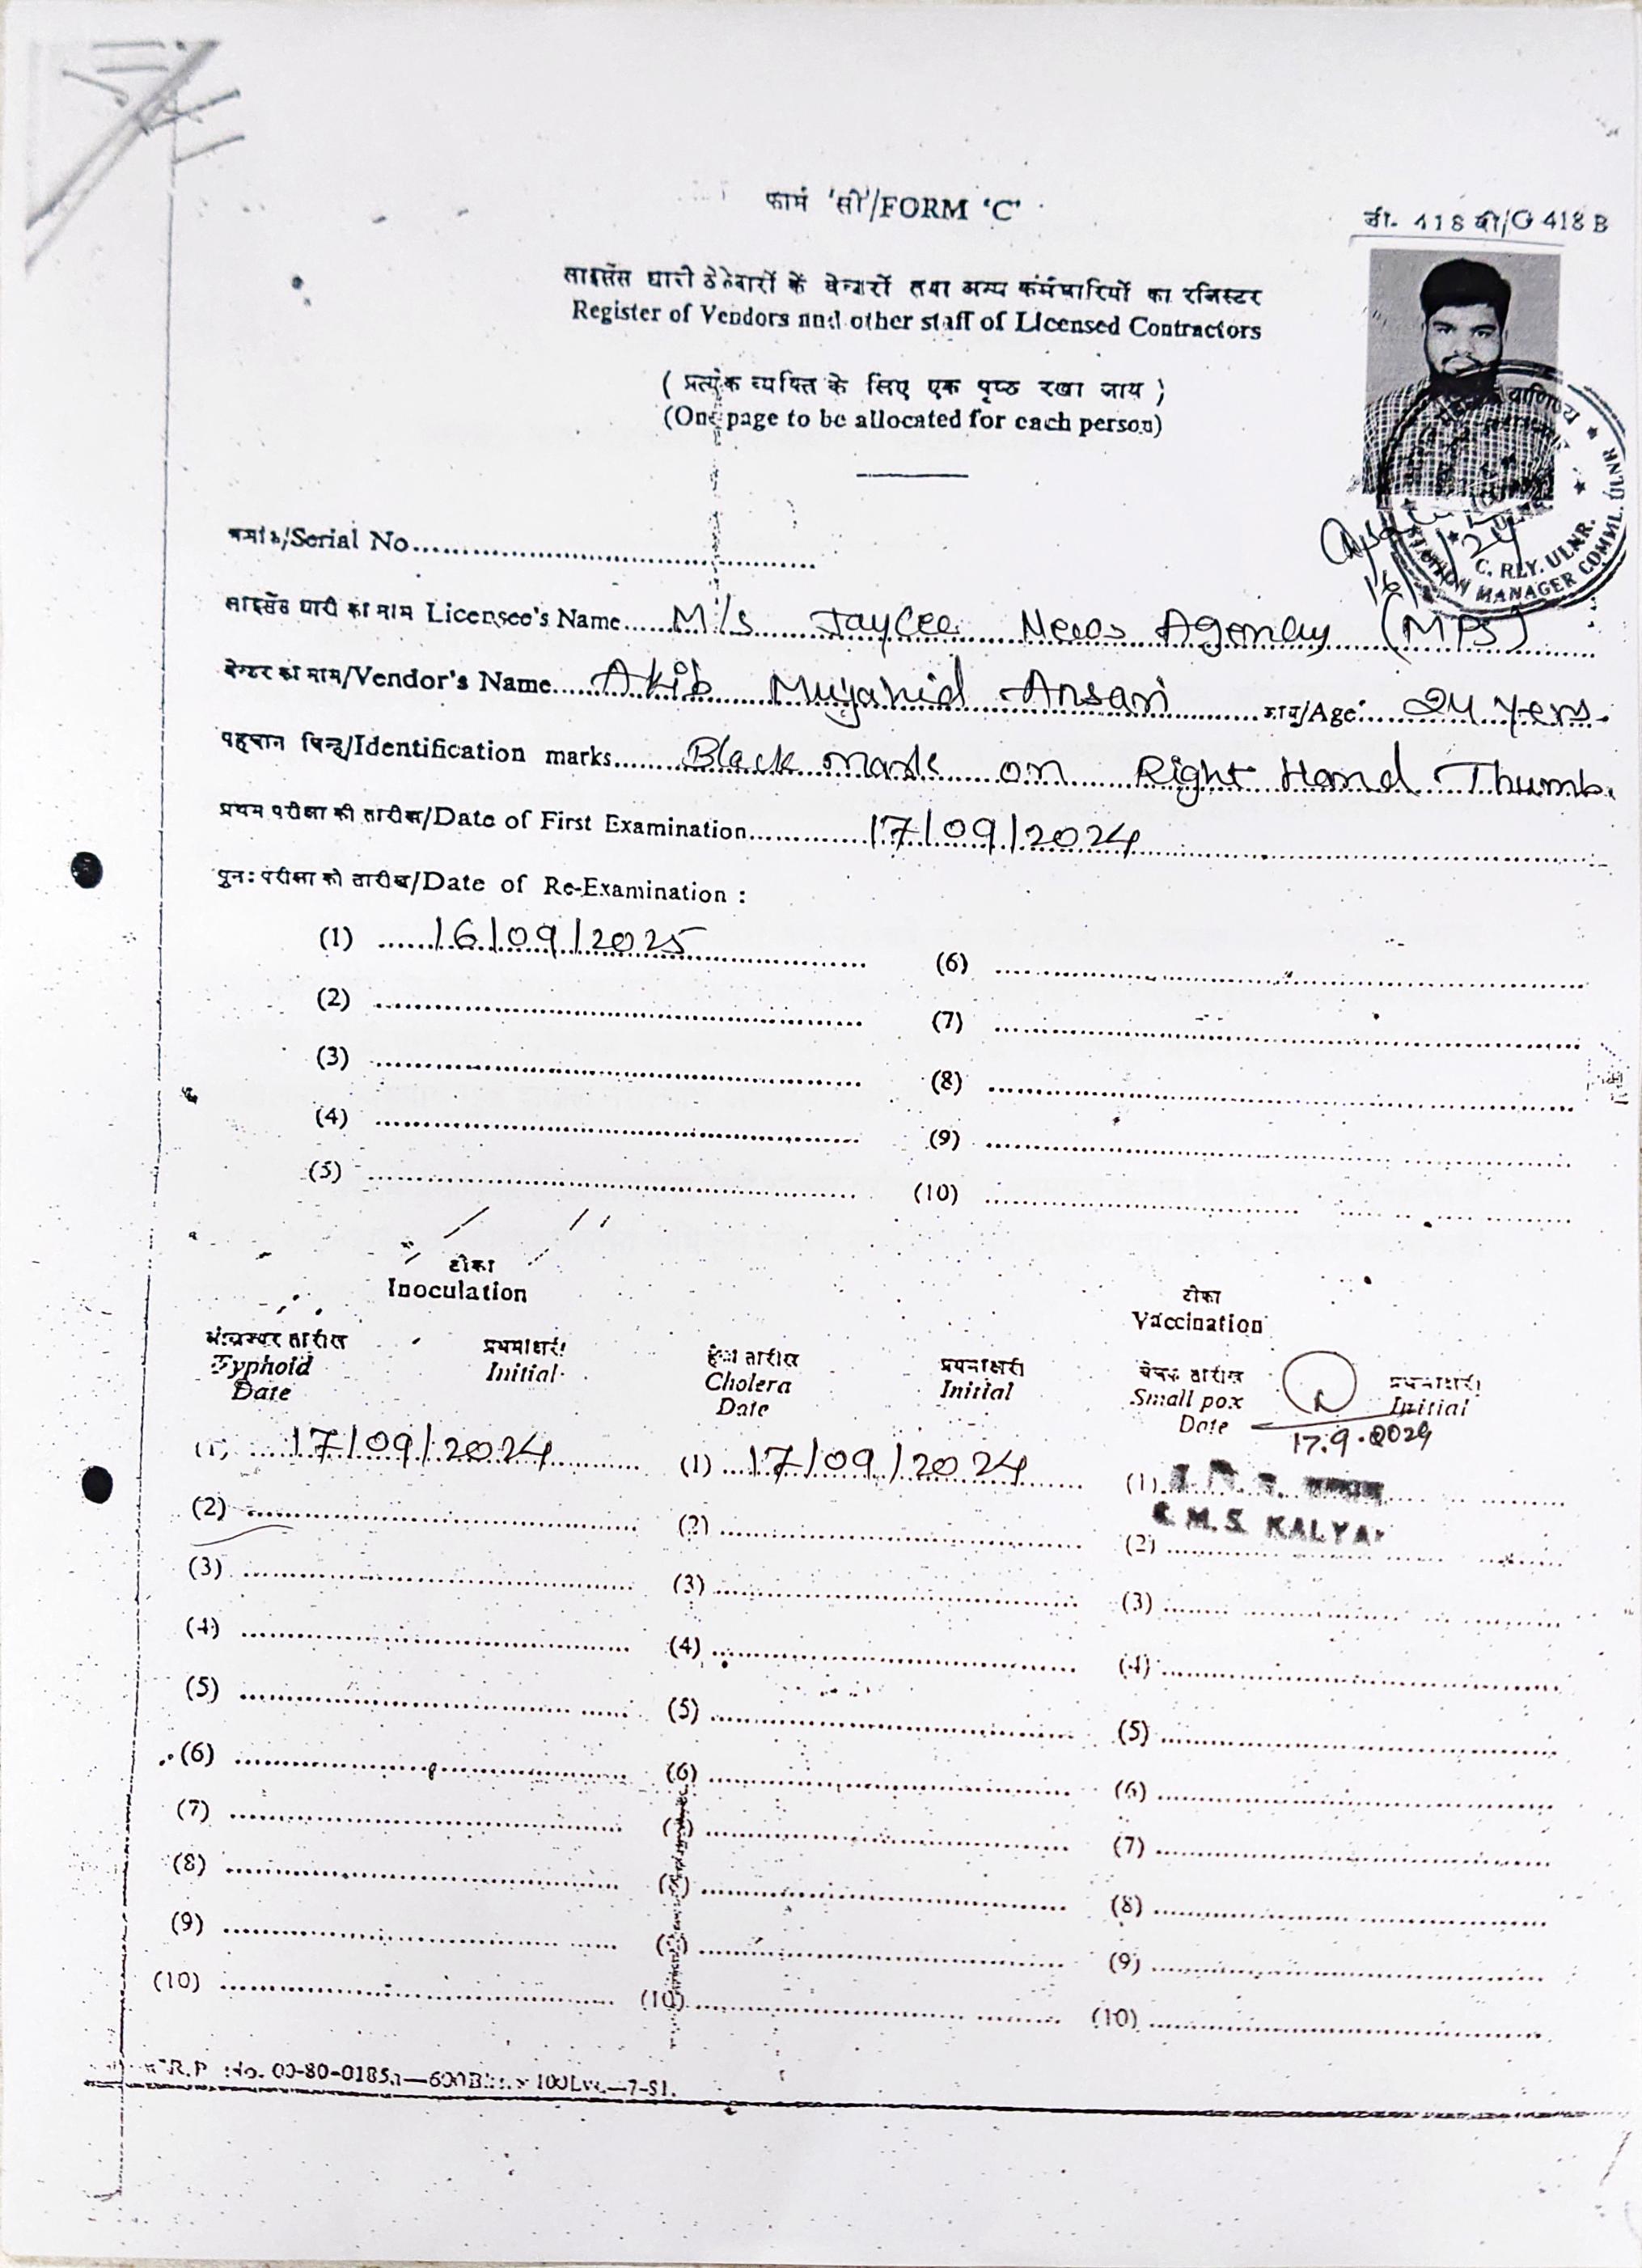 फार्म 'सी'/FORM 'C'
जी. 418 बी/G 418 B
लाइसेंस धारी ठेकेदारों के वेन्डरों तथा अन्य कर्मचारियों का रजिस्टर
Register of Vendors and other staff of Licensed Contractors
( प्रत्येक व्यक्ति के लिए एक पृष्ठ रखा जाय )
(One page to be allocated for each person)
वाणिज्य
C. RLY. ULNR.
STATION MANAGER COMML. ULNR
क्रमांक/Serial No.
लाइसेंस धारी का नाम Licensee's Name M/s Jaycee News Agency (MPS)
वेन्डर का नाम/Vendor's Name Akib Mujahid Ansari आयु/Age: 24 Yers.
पहचान चिन्ह/Identification marks Black mark on Right Hand Thumb.
प्रथम परीक्षा की तारीख/Date of First Examination 17/09/2024
पुन: परीक्षा की तारीख/Date of Re-Examination :
(1) 16/09/2025 (6)
(2) (7)
(3) (8)
(4) (9)
(5) (10)
टीका टीका
Inoculation Vaccination
तारीख प्रथमाक्षरी हैजा तारीख प्रथमाक्षरी चेचक तारीख प्रथमाक्षरी
Typhoid Date Initial Cholera Date Initial Small pox Date Initial
17.9.2024
(1) 17/09/2024 (1) 17/09/2024 (1)
M.S. KALYAN
(2) (2) (2)
(3) (3) (3)
(4) (4) (4)
(5) (5) (5)
(6) (6) (6)
(7) (7) (7)
(8) (8) (8)
(9) (9) (9)
(10) (10) (10)
R.P. No. 00-80-0185